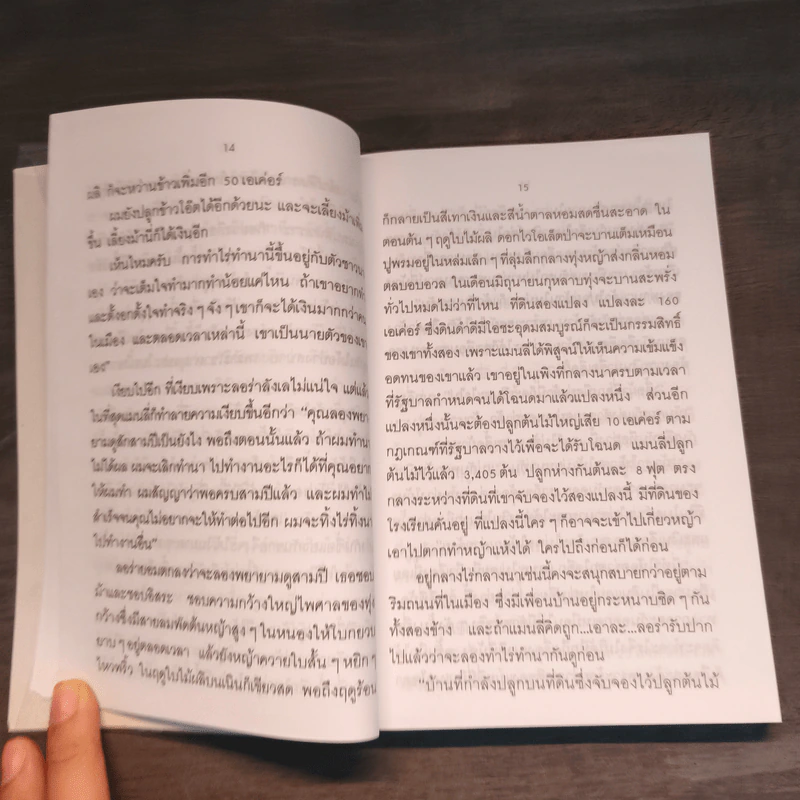 14
ผลิ ก็จะหว่านข้าวเพิ่มอีก 50 เอเค่อร์
ผมยังปลูกข้าวโอ๊ตได้อีกด้วยนะ และจะเลี้ยงม้าเพิ่ม
ขึ้น เลี้ยงม้านี่ก็ได้เงินอีก
เห็นไหมครับ การทำไร่ทำนานี้ขึ้นอยู่กับตัวชาวนา
เอง ว่าจะเต็มใจทำมากทำน้อยแค่ไหน ถ้าเขาอยากทำ
และตั้งอกตั้งใจทำจริง ๆ จัง ๆ เขาก็จะได้เงินมากกว่าคน
ในเมือง และตลอดเวลาเหล่านี้ เขาเป็นนายตัวของเขา
เอง"
เงียบไปอีก ที่เงียบเพราะลอร่าลังเลไม่แน่ใจ แต่แล้ว
ในที่สุดแมนลี่ก็ทำลายความเงียบขึ้นอีกว่า "คุณลองพยา
ยามดูสักสามปีเป็นยังไง พอถึงตอนนั้นแล้ว ถ้าผมทำนา
ไม่ได้ผล ผมจะเลิกทำนา ไปทำงานอะไรก็ได้ที่คุณอยาก
ให้ผมทำ ผมสัญญาว่าพอครบสามปีแล้ว และผมทำไม่
สำเร็จจนคุณไม่อยากจะให้ทำต่อไปอีก ผมจะทิ้งไร่ทิ้งนา
ไปทำงานอื่น"
ลอร่ายอมตกลงว่าจะลองพยายามดูสามปี เธอชอบ
ม้าและชอบอิสระ ชอบความกว้างใหญ่ไพศาลของทุ่ง
กว้างซึ่งมีสายลมพัดต้นหญ้าสูง ๆ ในหนองให้โบกยวบ
ยาบ ๆ อยู่ตลอดเวลา แล้วยังหญ้าควายใบสั้น ๆ หยิก ๆ
ไหวพริ้ว ในฤดูใบไม้ผลิบนเนินก็เขียวสด พอถึงฤดูร้อน
15
ก็กลายเป็นสีเทาเงินและสีน้ำตาลหอมสดชื่นสะอาด ใน
ตอนต้น ๆ ฤดูใบไม้ผลิ ดอกไวโอเล็ตป่าจะบานเต็มเหมือน
ปูพรมอยู่ในหล่มเล็ก ๆ ที่ลุ่มลึกกลางทุ่งหญ้าส่งกลิ่นหอม
ตลบอบอวล ในเดือนมิถุนายนกุหลาบทุ่งจะบานสะพรั่ง
ทั่วไปหมดไม่ว่าที่ไหน ที่ดินสองแปลง แปลงละ 160
เอเค่อร์ ซึ่งดินดำดีมีโอชะอุดมสมบูรณ์ก็จะเป็นกรรมสิทธิ์
ของเขาทั้งสอง เพราะแมนลี่ได้พิสูจน์ให้เห็นความเข้มแข็ง
อดทนของเขาแล้ว เขาอยู่ในเพิงที่กลางนาครบตามเวลา
ที่รัฐบาลกำหนดจนได้โฉนดมาแล้วแปลงหนึ่ง ส่วนอีก
แปลงหนึ่งนั้นจะต้องปลูกต้นไม้ใหญ่เสีย 10 เอเค่อร์ ตาม
กฎเกณฑ์ที่รัฐบาลวางไว้เพื่อจะได้รับโฉนด แมนลี่ปลูก
ต้นไม้ไว้แล้ว 3,405 ต้น ปลูกห่างกันต้นละ 8 ฟุต ตรง
กลางระหว่างที่ดินที่เขาจับจองไว้สองแปลงนี้ มีที่ดินของ
โรงเรียนคั่นอยู่ ที่แปลงนี้ใคร ๆ ก็อาจจะเข้าไปเกี่ยวหญ้า
เอาไปตากทำหญ้าแห้งได้ ใครไปถึงก่อนก็ได้ก่อน
อยู่กลางไร่กลางนาเช่นนี้คงจะสนุกสบายกว่าอยู่ตาม
ริมถนนที่ในเมือง ซึ่งมีเพื่อนบ้านอยู่กระหนาบชิด ๆ กัน
ทั้งสองข้าง และถ้าแมนลี่คิดถูก...เอาละ...ลอร่ารับปาก
ไปแล้วว่าจะลองทำไร่ทำนากันดูก่อน
"บ้านที่กำลังปลูกบนที่ดินซึ่งจับจองไว้ปลูกต้นไม้